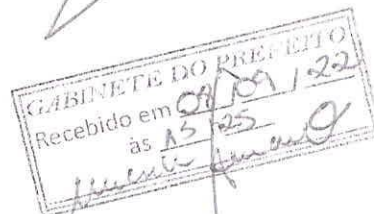 GABINETE DO PREFEITO
Recebido em 09/09/22
às 15:25